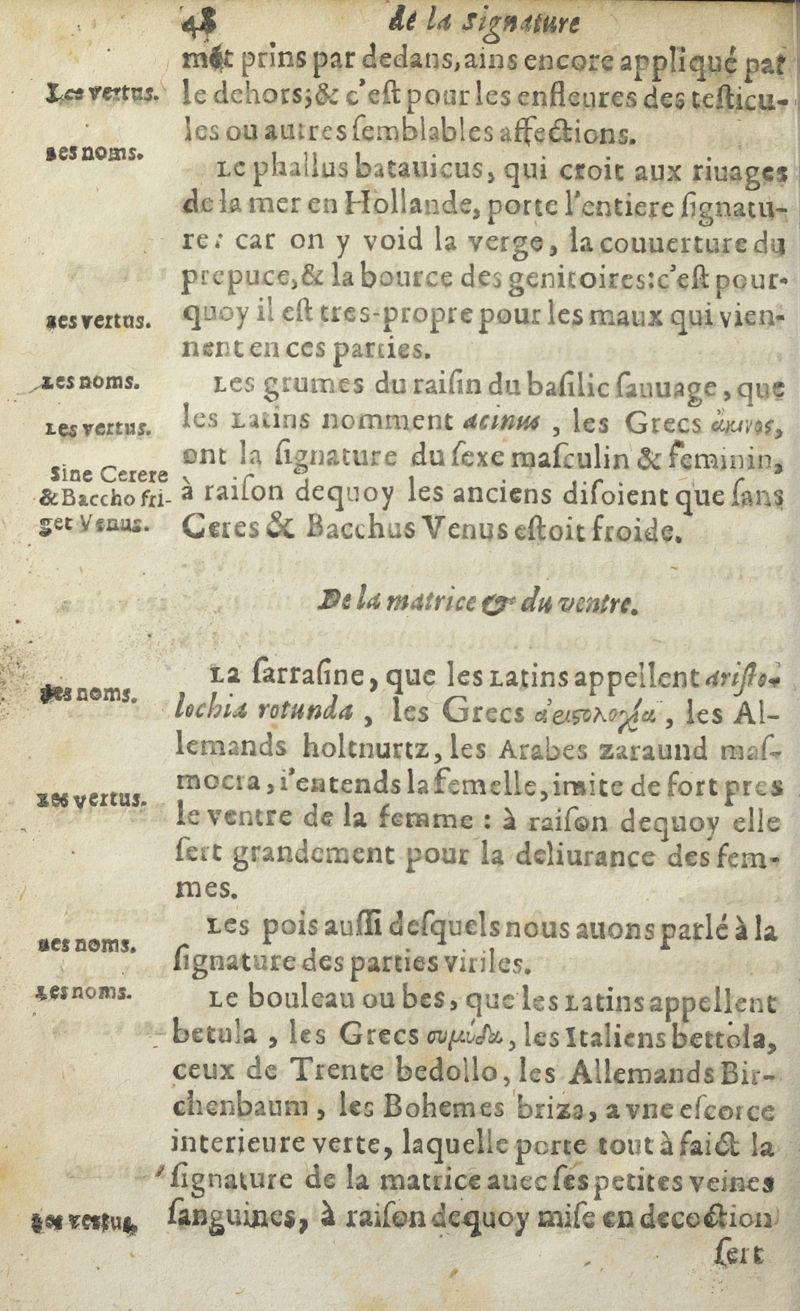 48 de la signature
mẽt prins par dedans, ains encore appliqué par
Les vertus. le dehors; & c'eſt pour les enfleures des teſticu-
les ou autres ſemblables affections.
Les noms. Le phallus batauicus, qui croit aux riuages
de la mer en Hollande, porte l'entiere ſignatu-
re: car on y void la verge, la couuerture du
prepuce, & la bource des genitoires: c'eſt pour-
Les vertus. quoy il eſt tres-propre pour les maux qui vien-
nent en ces parties.
Les noms. Les grumes du raiſin du baſilic ſauuage, que
Les vertus. les Latins nomment acinus, les Grecs ἄκινος,
ont la ſignature du ſexe maſculin & feminin,
Sine Cerere
& Baccho fri- à raiſon dequoy les anciens diſoient que ſans
get Venus. Ceres & Bacchus Venus eſtoit froide.
De la matrice & du ventre.
Les noms. La ſarraſine, que les Latins appellent ariſto-
lochia rotunda, les Grecs ἀριστολοχία, les Al-
lemands holtnurtz, les Arabes zaraund maſ-
mocra, i'entends la femelle, imite de fort pres
Les vertus. le ventre de la femme : à raiſon dequoy elle
ſert grandement pour la deliurance des fem-
mes.
Les noms. Les pois auſſi deſquels nous auons parlé à la
ſignature des parties viriles.
Les noms. Le bouleau ou bes, que les Latins appellent
betula, les Grecs σημύδα, les Italiens bettola,
ceux de Trente bedollo, les Allemands Bir-
chenbaum, les Bohemes briza, a vne eſcorce
interieure verte, laquelle porte tout à faict la
ſignature de la matrice auec ſes petites veines
Les vertus, ſanguines, à raiſon dequoy miſe en decoction
ſert